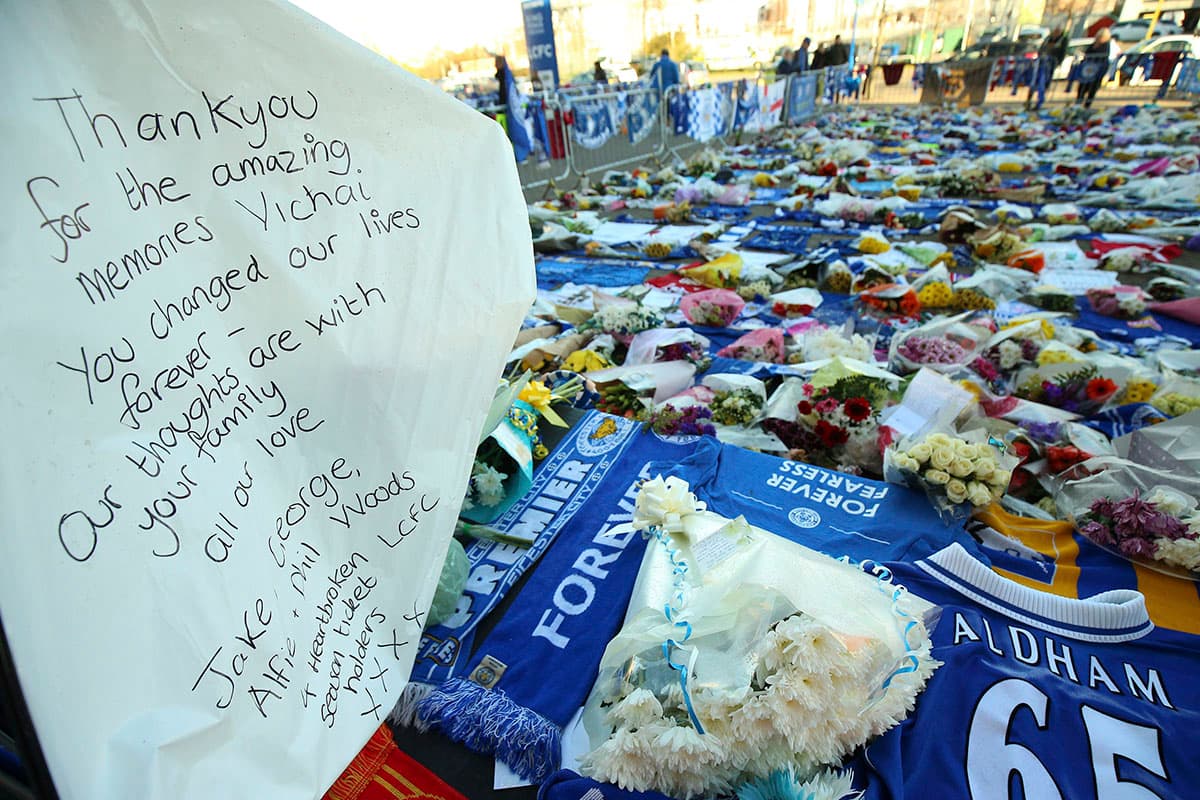 Thankyou
for the amazing
memories Vichai
You changed our lives
forever –
Our thoughts are with
your family
all our love
Jake, George,
Alfie + Phil Woods
4 Heartbroken LCFC
season ticket
holders
x x x x
LCFC
PREMIER
FOREVER
FOREVER
FEARLESS
ALDHAM
65